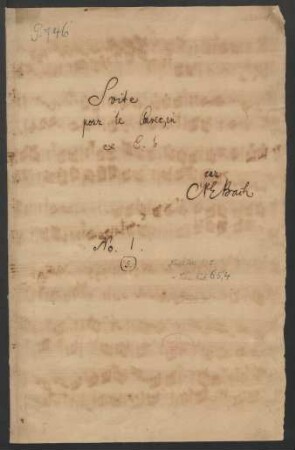 P 746
Svite
pour le Clavecin
ex
par
CPE Bach
No. 1.
65,4